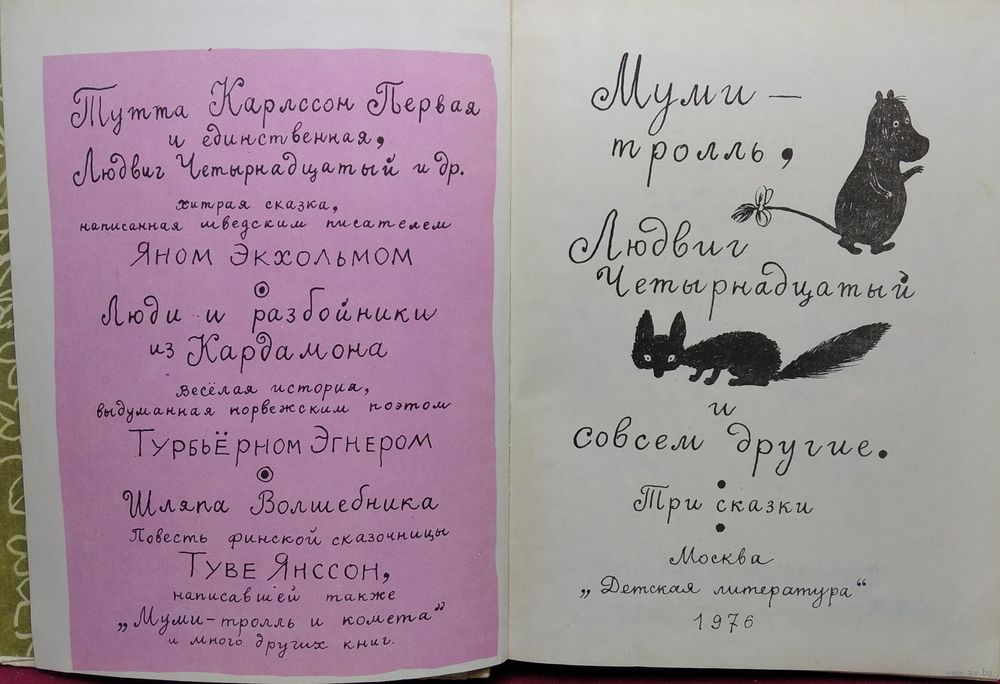 Тутта Карлссон Первая
и единственная,
Людвиг Четырнадцатый и др.
хитрая сказка,
написанная шведским писателем
Яном Экхольмом
Люди и разбойники
из Кардамона
весёлая история,
выдуманная норвежским поэтом
Турбьёрном Эгнером
Шляпа Волшебника
Повесть финской сказочницы
Туве Янссон,
написавшей также
„Муми-тролль и комета“
и много других книг.
Муми-
тролль,
Людвиг
Четырнадцатый
и
совсем другие.
Три сказки
Москва
„Детская литература“
1976
www.av.by